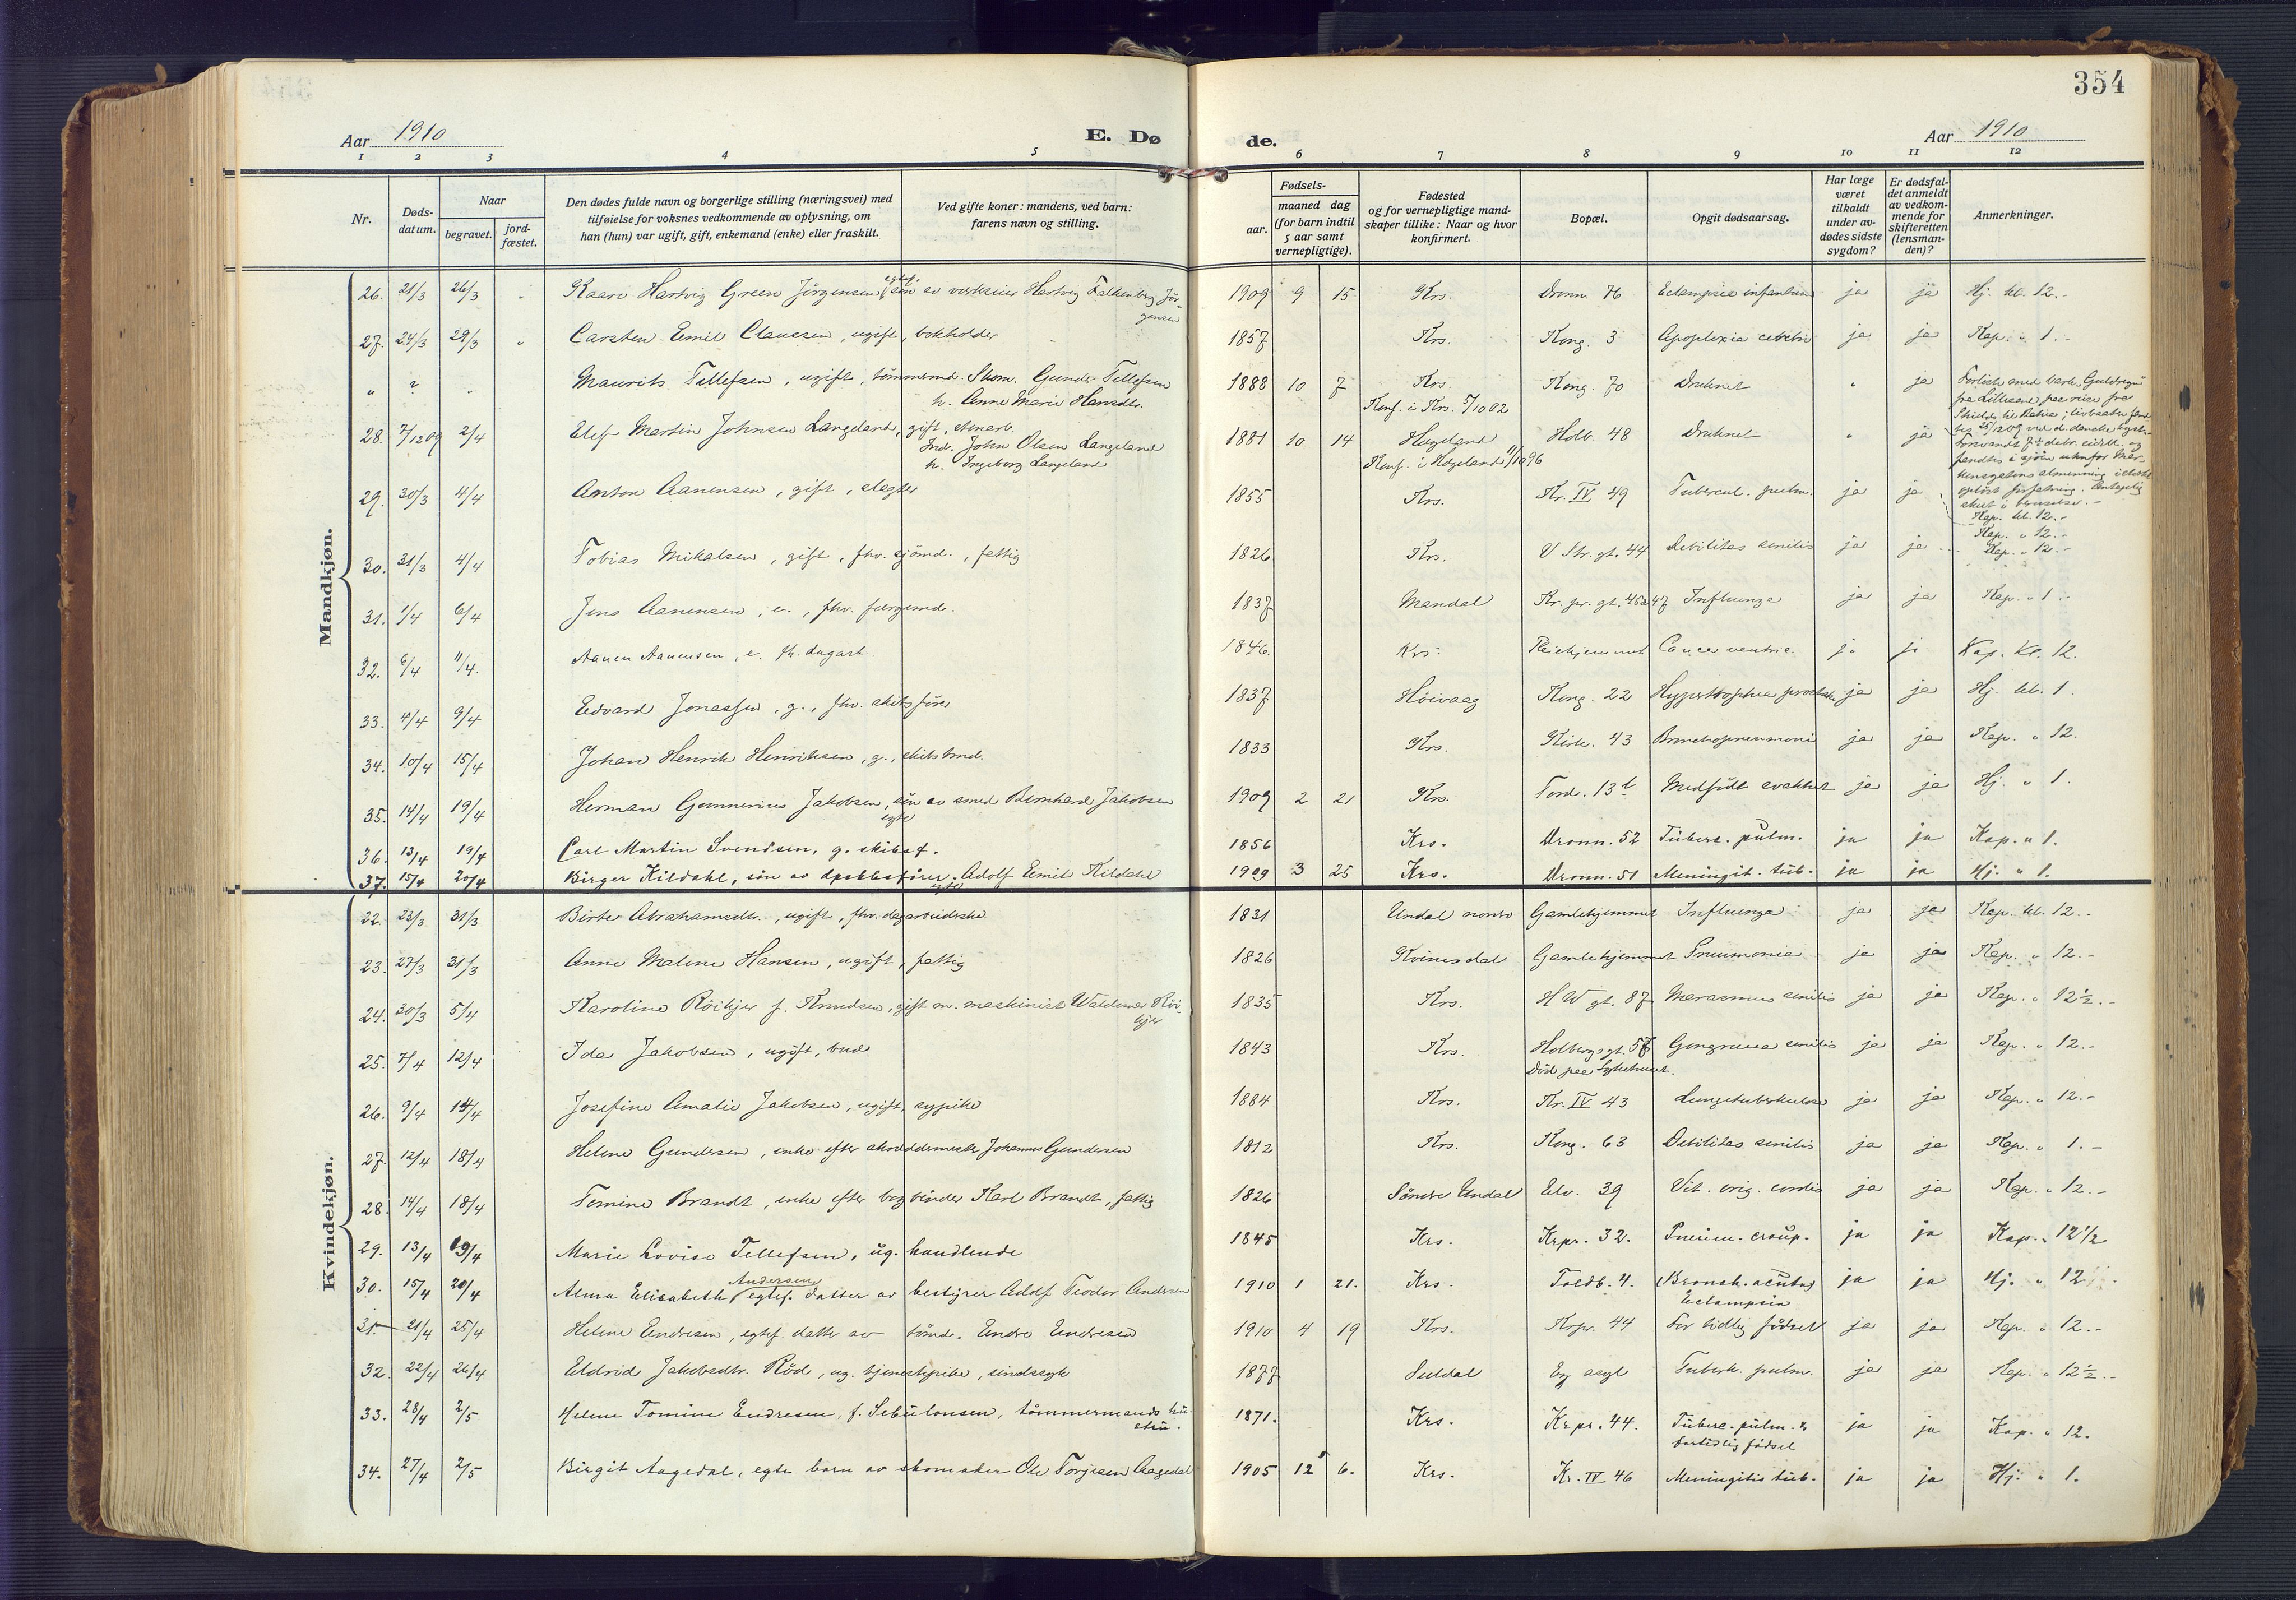 354
Aar 1910 E. Dø de. Aar 1910
1 2 3 4 5 6 7 8 9 10 11 12
Nr.
Døds-datum.
Naar
begravet.
jord-fæstet.
Den dødes fulde navn og borgerlige stilling (næringsvei) med
tilføielse for voksnes vedkommende av oplysning, om
han (hun) var ugift, gift, enkemand (enke) eller fraskilt.
Ved gifte koner: mandens, ved barn:
farens navn og stilling.
Fødsels-
aar.
maaned dag
(for barn indtil
5 aar samt
vernepligtige).
Fødested
og for vernepligtige mand-
skaper tillike: Naar og hvor
konfirmert.
Bopæl.
Opgit dødsaarsag.
Har læge
været
tilkaldt
under av-
dødes sidste
sygdom?
Er dødsfal-
det anmeldt
av vedkom-
mende for
skifteretten
(lensman-
den)?
Anmerkninger.
Mandkjøn.
26. 21/3 26/3 " Kaare Hartvig Green Jörgensen, egtef. sön av verkseier Hartvig Falkenberg Jör-gensen 1909 9 15 Krs. Dronn. 76 Eclampsia infantum ja ja Hj. kl. 12.-
27. 24/3 29/3 " Carsten Emil Clausen, ugift, bokholder 1857 Krs. Kong. 3 Apoplexia cerebri ja ja Kap. " 1.-
" ? " Maurits Tellefsen, ugift, tömmermd. Skom. Gunder Tellefsen 1888 10 7 Krs. Kong. 70 Druknet " ja
h. Anne Marie Hansdtr. Konf. i Krs. 5/10 02
28. 7/12 09 2/4 Elef Martin Johnsen Langeland, gift, stenarb. 1881 10 14 Hægeland Holb. 48 Druknet " ja
Ind. John Olsen Langeland
h. Ingeborg Langeland Konf. i Hægeland 11/10 96
Forlist med bark "Guldregn"
fra Lillesand paa reise fra
29. 30/3 4/4 Anton Aanensen, gift, slagter 1855 Krs. Kr. IV 49 Tubercul. pulm. ja ja Kap. kl. 12.-
Kap. " 12.-
30. 31/3 4/4 Tobias Mikalsen, gift, fhv. sjömd., fattig 1826 Krs. V Str. gt. 44 Debilitas senilis ja ja Kap. " 12.-
31. 1/4 6/4 Jens Aanensen, e., fhv. færgemd. 1837 Mandal Kr. pr. gt. 45 a 47 Influenza ja ja Kap. " 1.-
32. 6/4 11/4. Aanen Aanensen, e. fh. dagarb. 1846. Krs. Pleiehjemmet Cancer ventric. ja ja Kap. Kl. 12.
33. 4/4 9/4 Edvard Jonassen, g., fhv. skibsförer 1837 Höivaag Kong. 22 Hypertrophia prostatae ja ja Hj. kl. 1.
34. 10/4 15/4 Johan Henrik Henriksen, g., skibstmd. 1833 Krs. Kirk. 43 Bronchopneumoni ja ja Kap. " 12.
35. 14/4 19/4 Herman Gunnerius Jakobsen, egte sön av smed Bernhard Jakobsen 1909 2 21 Krs. Tord. 13 b Medfödt svakhet ja ja Hj. " 1.
36. 13/4 19/4 Carl Martin Svendsen, g. skibsf. 1856 Krs. Dronn. 52 Tuberc. pulm. ja ja Kap. " 1.
37. 15/4 20/4 Birger Kildahl, egte sön av dpskbsfører Adolf Emil Kildahl 1909 3 25 Krs. Dronn. 51 Meningit. tub. ja ja Hj. " 1.
Kvindekjøn.
22. 23/3 31/3 Birte Abrahamsdtr., ugift, fhv. dagarbeiderske 1831 Undal nordre Gamlehjemmet Influenza ja ja Kap. kl. 12.-
23. 27/3 31/3 Anne Malene Hansen, ugift, fattig 1826 Kvinesdal Gamlehjemmet Pneumonia ja ja Kap. " 12.-
24. 30/3 5/4 Karoline Röikjer f. Knudsen, gift m. maskinist Waldemar Röi-kjer 1835 Krs. H W gt. 87 Marasmus senilis ja ja Kap. " 12 1/2.-
25. 7/4 12/4 Ida Jakobsen, ugift, bud 1843 Krs. Holbergsgt. 57 Gangræna senilis ja ja Kap. " 12.-
Död paa Sykehuset.
26. 9/4 14/4 Josefine Amalie Jakobsen, ugift, sypike 1884 Krs. Kr. IV 43 Lungetuberkulose ja ja Kap. " 12.-
27. 12/4 18/4 Helene Gundersen, enke efter skræddermester Johannes Gundersen 1812 Krs. Kong. 63 Debilitas senilis ja ja Kap. " 1.-
28. 14/4 18/4 Tomine Brandt, enke efter bogbinder Karl Brandt, fattig 1826 Söndre Undal Elv. 39 Vit. org. cordis ja ja Kap. " 12.-
29. 13/4 19/4 Marie Lovise Tellefsen, ug. handlende 1845 Krs. Krpr. 32. Pneum. croup. ja ja Kap. " 12 1/2
30. 15/4 20/4 Alma Elisabeth Andersen egtef. datter av bestyrer Adolf Teodor Andersen 1910 1 21. Krs. Toldb. 4. Bronch. acuta, Eclampsia ja ja Hj. " 12
31 21/4 25/4 Helene Endresen, egtef. datter av tömd. Endre Endresen 1910 4 19 Krs. Krpr. 44 For tidlig fødsel ja ja Kap. " 12.-
32. 22/4 26/4 Eldrid Jakobsdtr. Röd, ug. tjenestepike, sindssyk 1877 Suldal Eg asyl Tuberk. pulm. ja ja Kap. " 12 1/2.-
33. 28/4 2/5 Helene Tomine Endresen, f. Sebulonsen, tömmermands hu-stru. 1871. Krs. Krpr. 44. Tuberc. pulm. & fortidlig födsel ja ja Kap. " 12.
34. 27/4 2/5 Birgit Aagedal, egte barn av skomaker Ole Torjusen Aagedal 1905 12 6. Krs. Kr. IV 46 Meningitis tub. ja ja Hj. " 1.